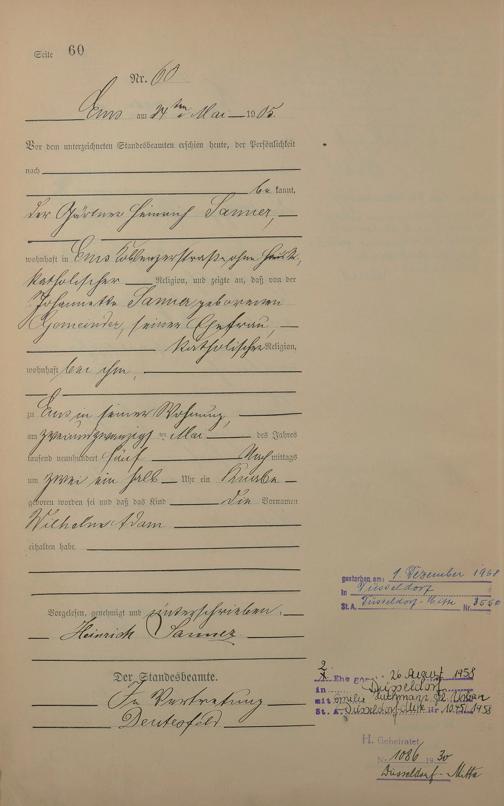 Seite 60
Nr. 60
Ems am 24ten Mai 1905.
Vor dem unterzeichneten Standesbeamten erschien heute, der Persönlichkeit
nach
bekannt,
der Gärtner Heinrich Sanner,
wohnhaft in Ems Koblenzerstraße ohne
katholischer Religion, und zeigte an, daß von der
Johannette Sanner geborenen
seiner Ehefrau,
katholischer Religion,
wohnhaft bei ihm,
zu Ems in seiner Wohnung,
am zweiundzwanzigsten Mai des Jahres
tausend neunhundert fünf Nachmittags
um zwei ein halb Uhr ein Knabe
geboren worden sei und daß das Kind die Vornamen
Wilhelm Adam
erhalten habe.
Vorgelesen, genehmigt und unterschrieben.
Heinrich Sanner
Der Standesbeamte.
In Vertretung
gestorben am: 1. Dezember 1968
in Düsseldorf
St.A. Düsseldorf-Mitte Nr.
2. Ehe 26. August 1958
in Düsseldorf
mit
St. A. Düsseldorf-Mitte Nr 1958
H. Geheiratet
Nr. 1086 1930
Düsseldorf-Mitte